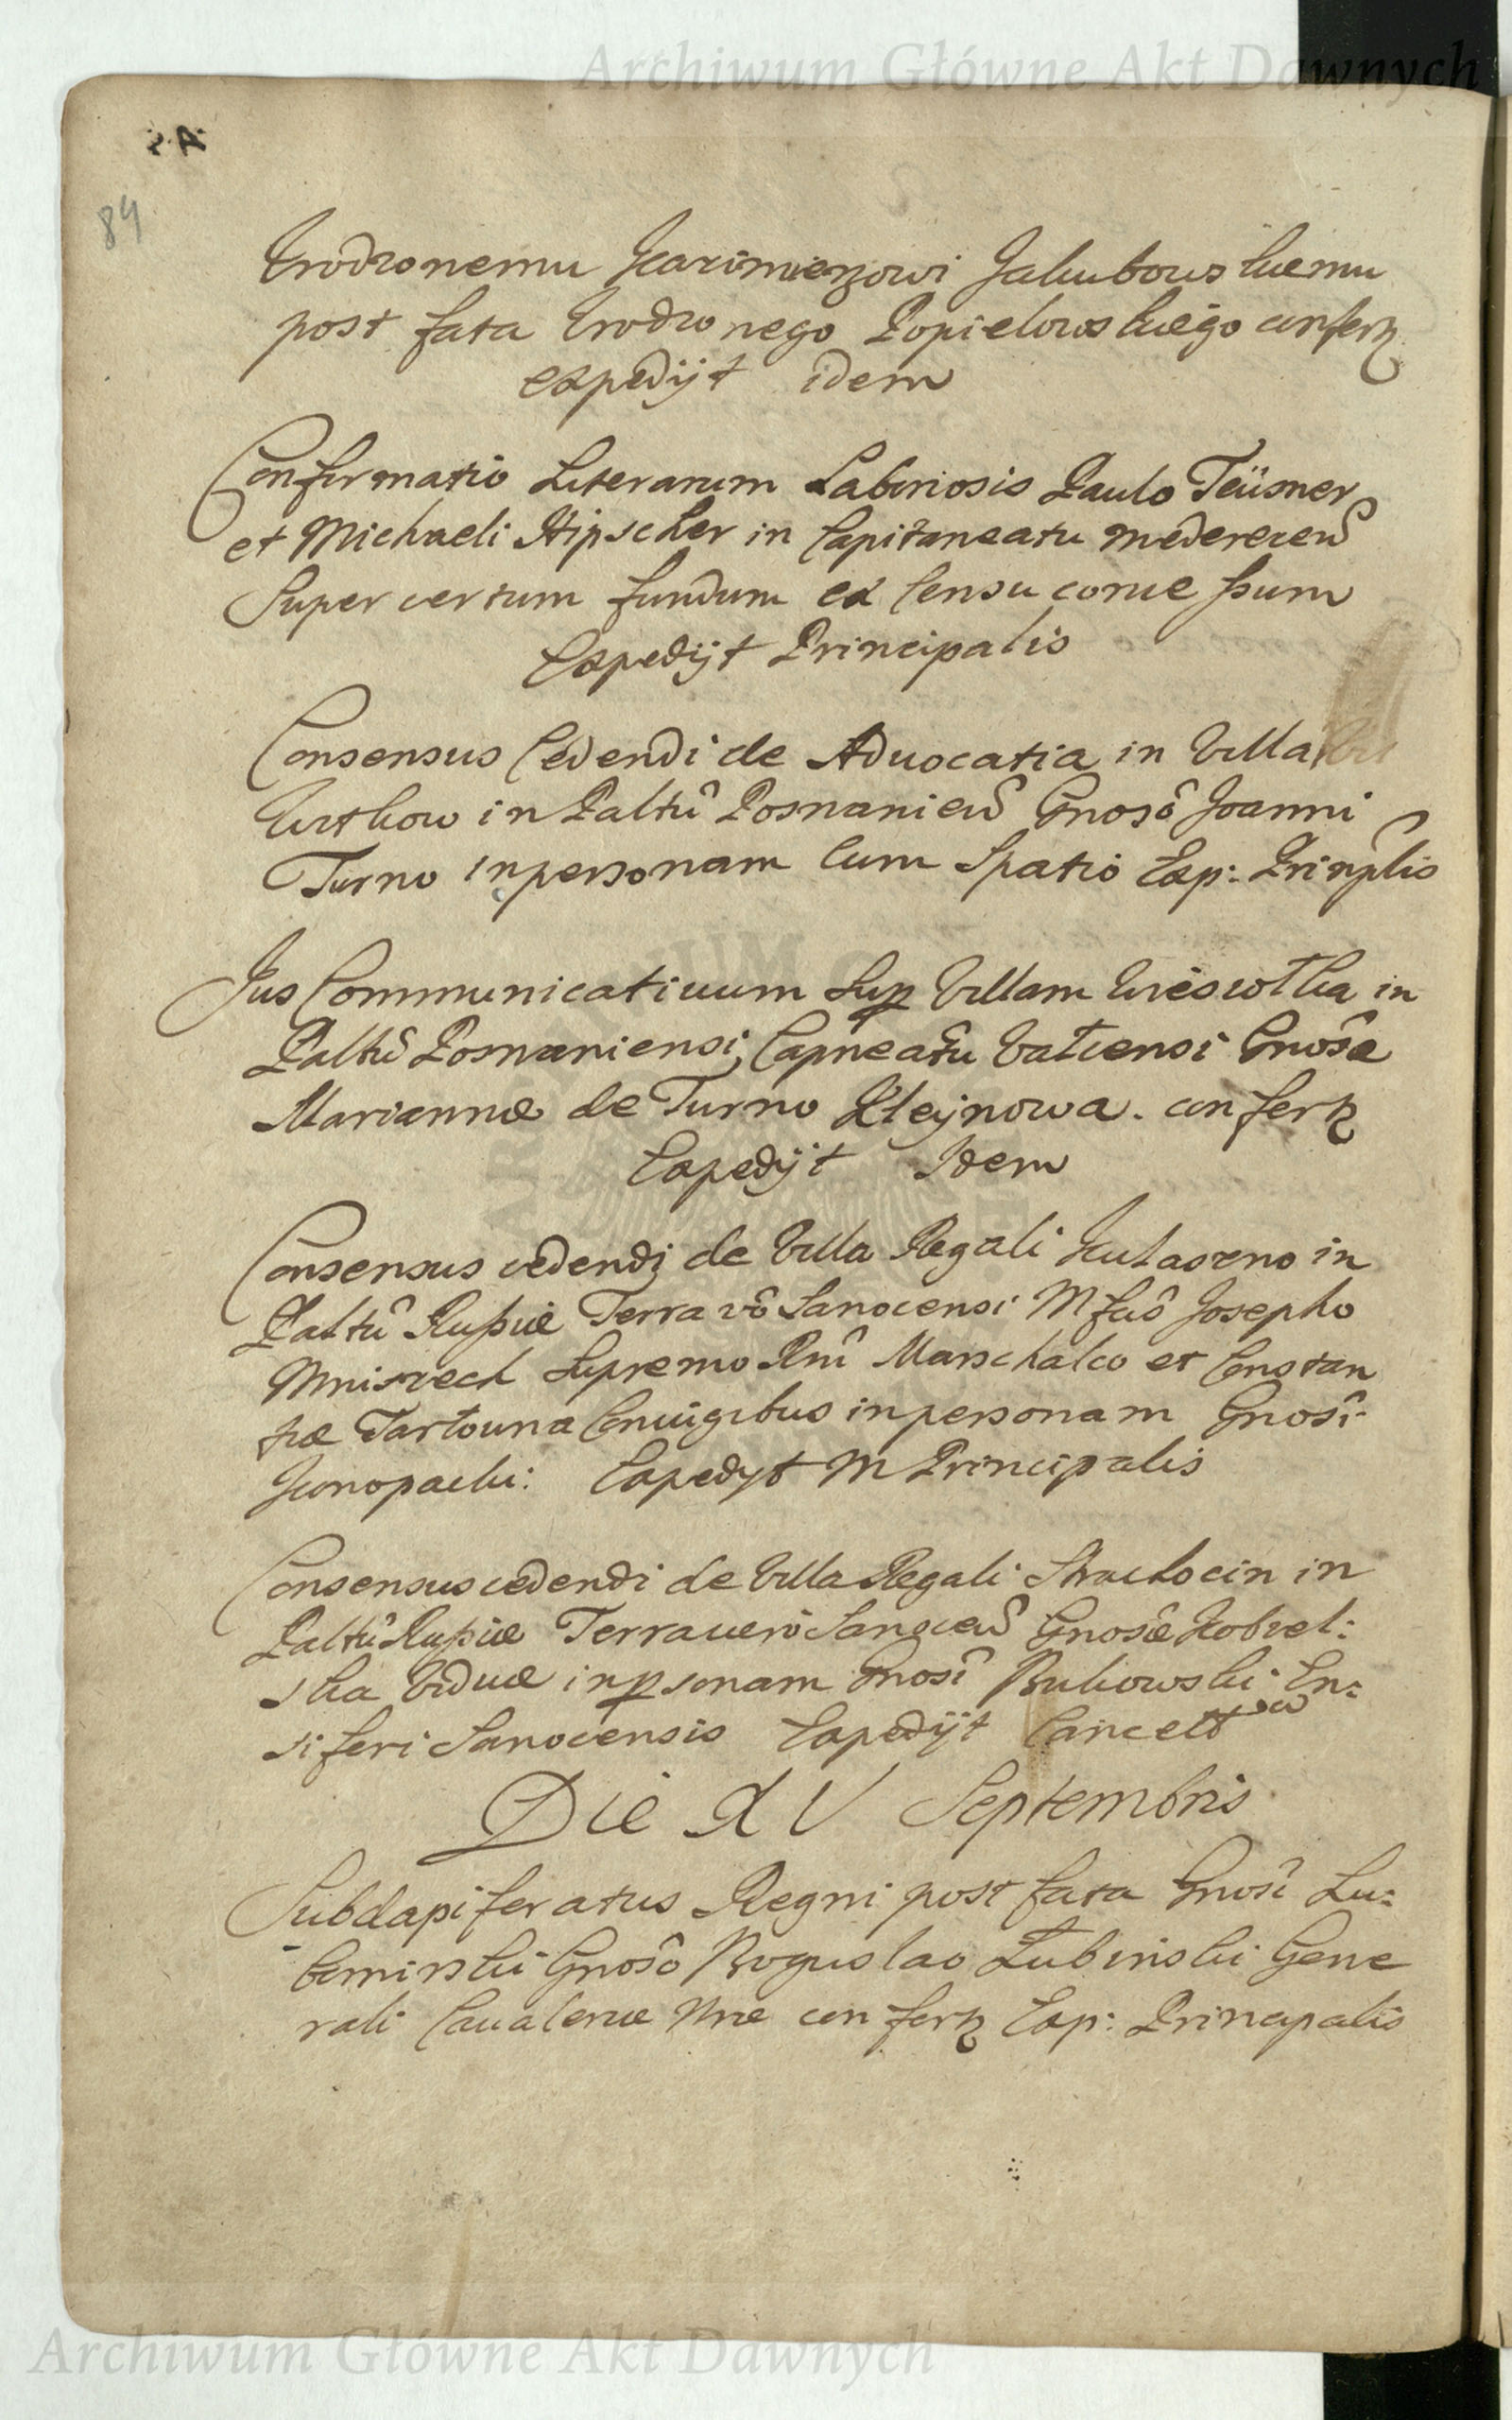 Archiwum Główne Akt Dawnych
84
Urodzonemu Kazimierzowi Jakubowskiemu
post fata Urodzonego Popielowskiego confertr
expedijt idem
Confirmatio Literarum Laboriosis Paulo Teüsner
et Michaeli Hipscher in Capitaneatu
Super certum fundum ex Censu
Expedijt Principalis
Consensus Cedendi de Advocatia in Villa
in Paltũ Posnanien Gnoso Joanni
Turno inpersonam cum Spatio Exp: Prinplis
Jus Communicativum Sup Villam in
Paltũ Posnaniensi, Capneatu Valcensi Gnosæ
Mariannæ de Turno Kleynowa. confertr
Expedijt Idem
Consensus cedendi de Villa Regali in
Paltũ Russiæ Terra vo Sanocensi Mfco Josepho
Mniszech Supremo Rni Marschalco et Constan
tiæ Tartouna Coniugibus inpersonam Gnosi
Konopacki: Expedyt M Principalis
Consensus cedendi de Villa Regali Strachocin in
Paltũ Russiæ Terra vero Sanocen Gnosæ
ska Viduæ inpsonam Gnosi Bukowski En:
siferi Sanocensis Expedijt
Die XV Septembris
Subdapiferatus Regni post fata Gnosi Lu:
bominski Gnoso Boguslao Łubinski Gene
rali Cavaleriæ Nræ confertr Exp: Principalis
Archiwum Główne Akt Dawnych